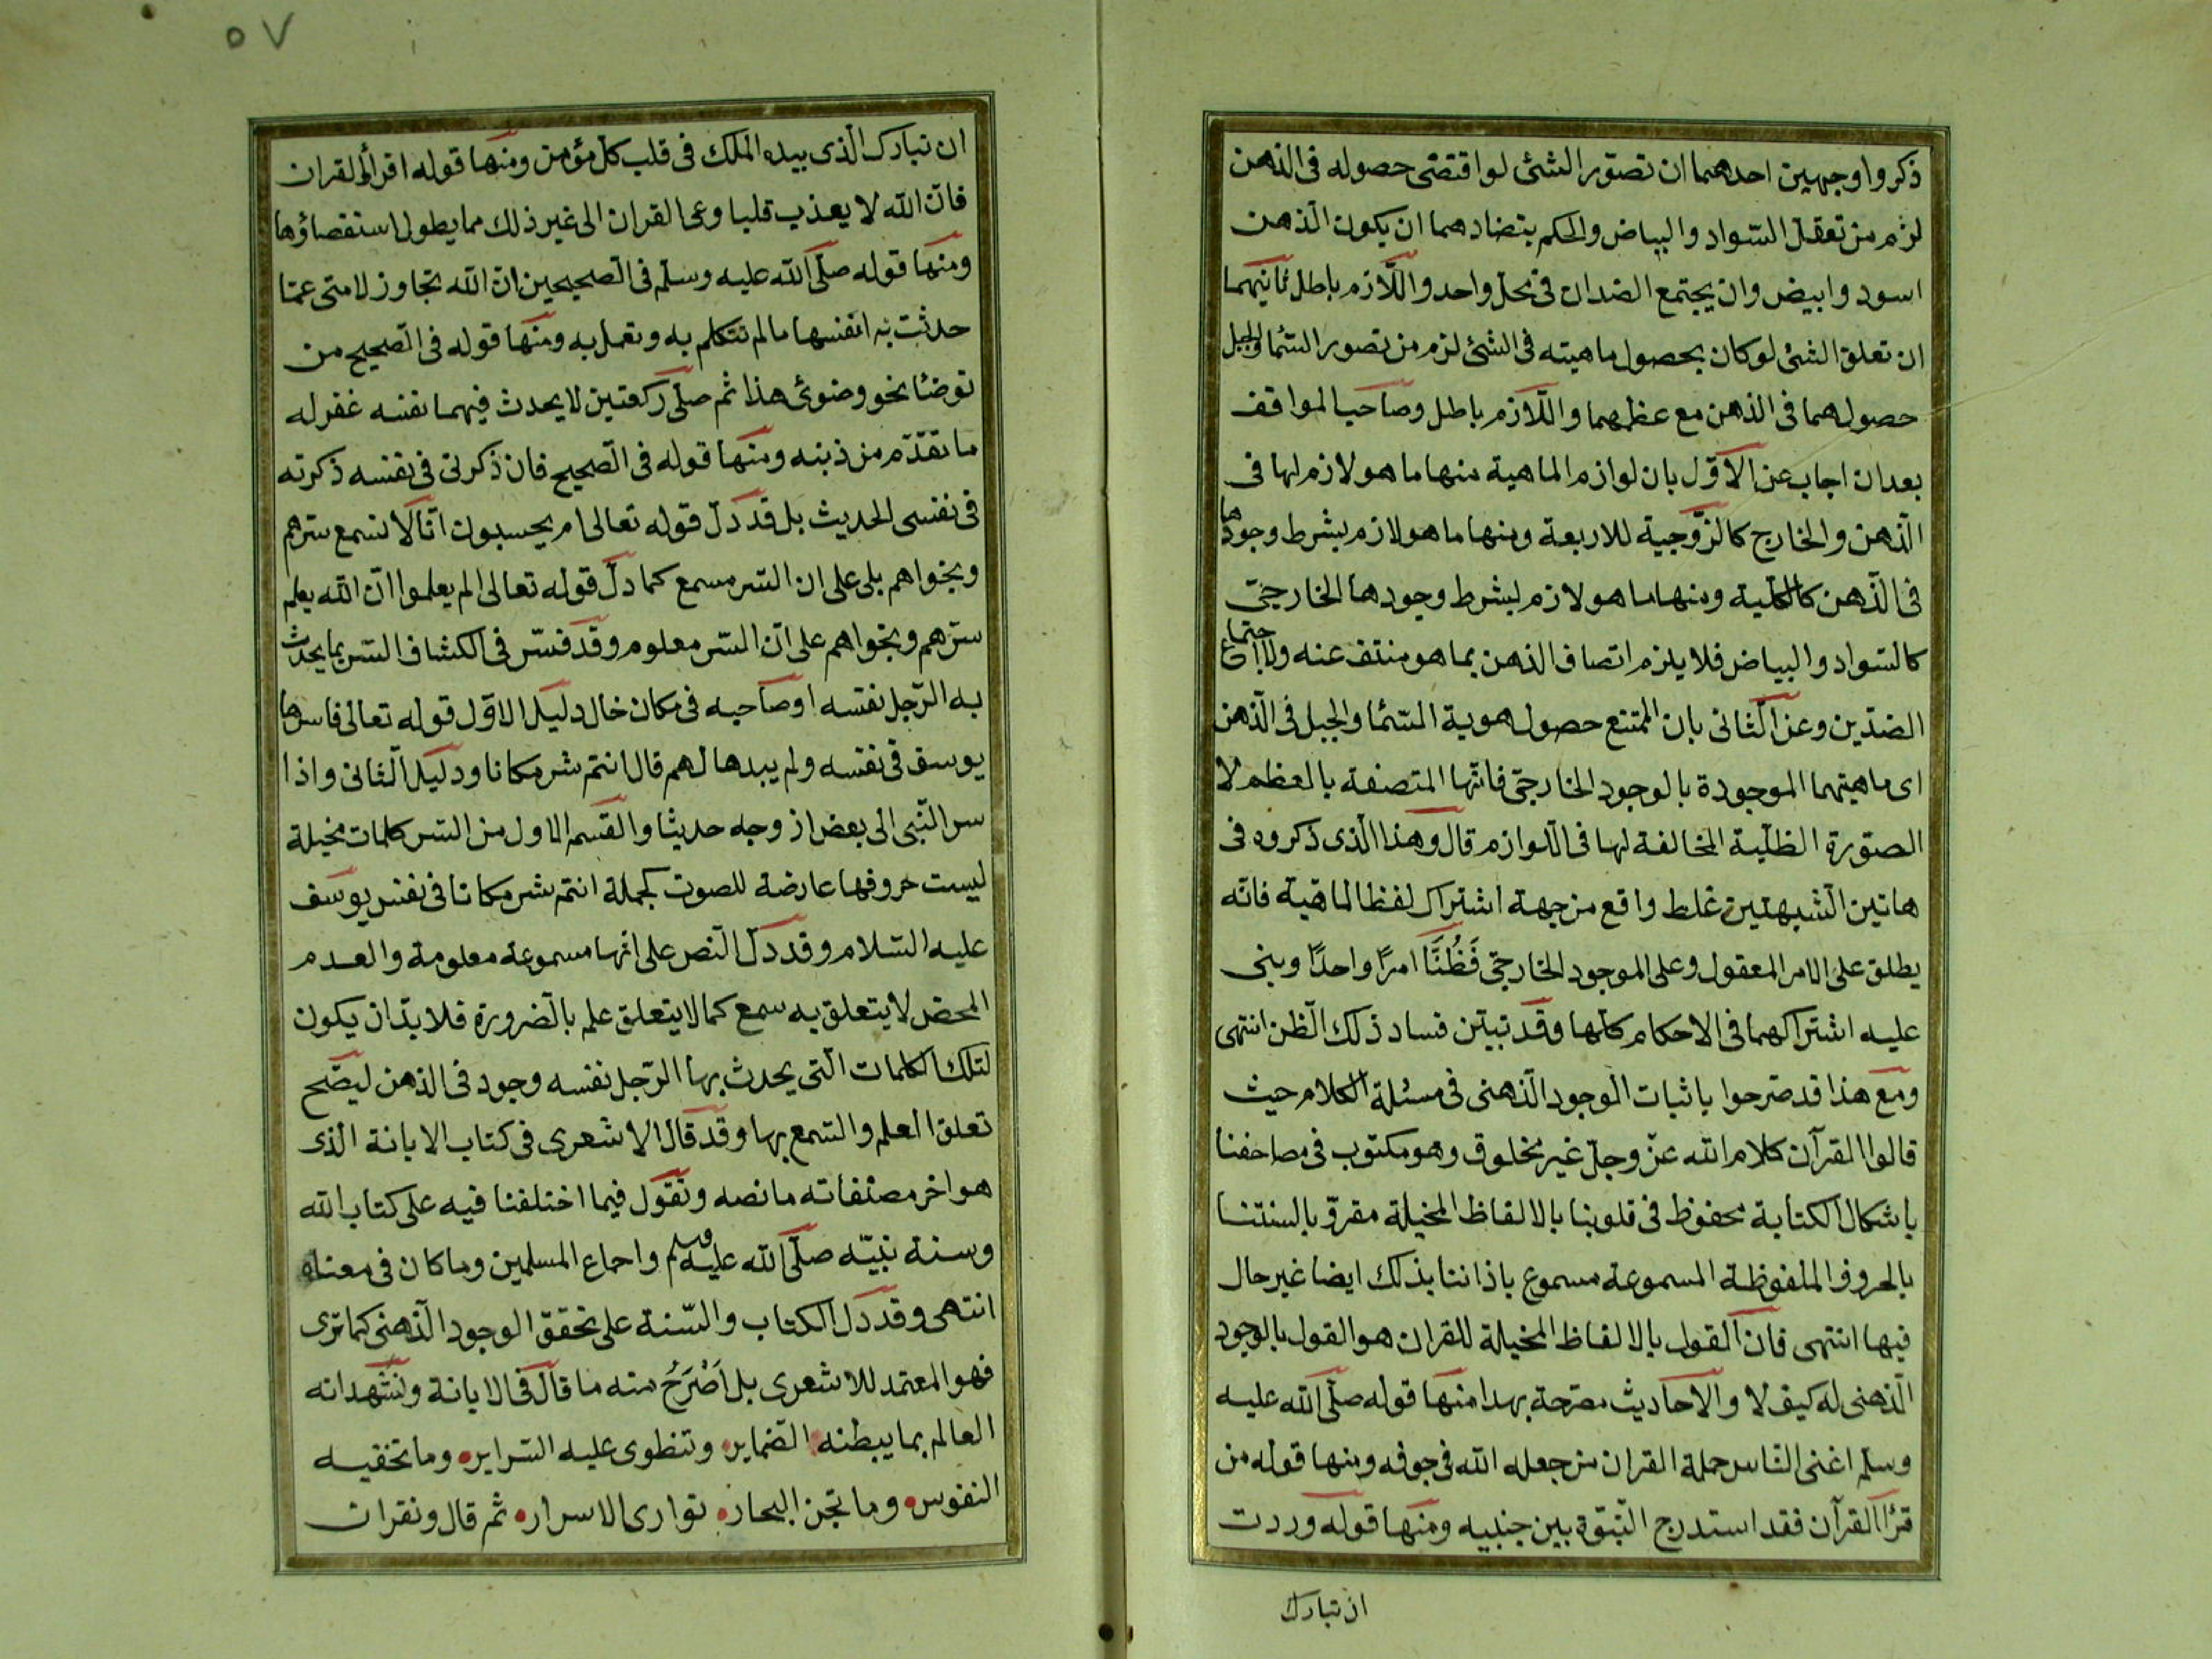 ذكروا وجهين احدهما ان تصوّر الشئ لو اقتضى حصوله فى الذهن
لزم من تعقل السّواد والبياض والحكم بتضادهما ان يكون الذهن
اسود وابيض وان يجتمع الضدان فى محل واحد واللّازم باطل ثانيهما
ان تعلق الشئ لو كان بحصول ماهيته فى الشئ لزم من تصور السّماء والجبل
حصولهما فى الذهن مع عظمهما واللّازم باطل وصاحب المواقف
بعد ان اجاب عن الاوّل بان لوازم الماهية منها ما هو لازم لها فى
الذّهن والخارج كالزّوجية للاربعة ومنها ما هو لازم بشرط وجودها
فى الذّهن كالكلية ومنها ما هو لازم بشرط وجودها الخارجىّ
كالسّواد والبياض فلا يلزم اتصاف الذهن بما هو منتف عنه ولا اجتماع
الضدّين وعن الثّانى بان الممتنع حصول هوية السّماء والجبل فى الذّهن
اى ماهيتهما الموجودة بالوجود الخارجىّ فانّها المتصفة بالعظم لا
الصّورة الظلّية المخالفة لها فى اللّوازم قال وهذا الذى ذكروه فى
هاتين الشّبهتين غلط واقع من جهة اشتراك لفظ الماهية فانّه
يطلق على الامر المعقول وعلى الموجود الخارجىّ فَظُنَّا امرًا واحدًا وبنى
عليه اشتراكهما فى الاحكام كلّها وقد تبيّن فساد ذلك الظّن انتهى
ومع هذا قد صرّحوا باثبات الوجود الذّهنى فى مسئلة الكلام حيث
قالوا القرآن كلام الله عزّ وجلّ غير مخلوق وهو مكتوب فى مصاحفنا
باشكال الكتابة محفوظ فى قلوبنا بالالفاظ المخيلة مقروّ بالسنتنا
بالحروف الملفوظة المسموعة مسموع باذاننا بذلك ايضا غير حال
فيها انتهى فان القول بالالفاظ المخيلة للقران هو القول بالوجود
الذّهنى له كيف لا والاحاديث مصّرحة بهذا منها قوله صلّى الله عليه
وسلم اغنى النّاس حملة القران من جعله الله فى جوفه ومنها قوله من
قرأ القرآن فقد استدرج النّبوّة بين جنبيه ومنها قوله وردت
ان تبارك
٥٧
ان تبارك الّذى بيده الملك فى قلب كلّ مؤمن ومنها قوله اقرأوا القران
فانّ الله لا يعذب قلبا وعى القران الى غير ذلك مما يطول استقصاؤها
ومنها قوله صلّى الله عليه وسلّم فى الصّحيحين انّ الله تجاوز لامتى عمّا
حدثت به انفسها ما لم تتكلم به وتعمل به ومنها قوله فى الصّحيح من
توضأ نحو وضوئى هذا ثم صلّى ركعتين لا يحدث فيهما نفسه غفر له
ما تقدّم من ذنبه ومنها قوله فى الصّحيح فان ذكرنى فى نفسه ذكرته
فى نفسى الحديث بل قد دلّ قوله تعالى ام يحسبون انّا لا نسمع سرّهم
ونجواهم بلى على ان السّر مسمع كما دلّ قوله تعالى الم يعلموا انّ الله يعلم
سرّهم ونجواهم على انّ السّر معلوم وقد فسّر فى الكشاف السّر بما يحدث
به الرّجل نفسه او صاحبه فى مكان خال دليل الاوّل قوله تعالى فاسرها
يوسف فى نفسه ولم يبدها لهم قال انتم شر مكانا ودليل الثّانى واذا
سر النّبى الى بعض ازوجه حديثا والقسم الاول من السّر كلمات مخيلة
ليست حروفها عارضة للصوت كجملة انتم شر مكانا فى نفس يوسف
عليه السّلام وقد دلّ النّص على انها مسموعة معلومة والعدم
المحض لا يتعلق به سمع كما لا يتعلق علم بالضّرورة فلا بدّ ان يكون
لتلك الكلمات الّتى يحدث بها الرّجل نفسه وجود فى الذهن ليصّح
تعلق العلم والسّمع بها وقد قال الاشعرى فى كتاب الابانة الذى
هو اخر مصنّفاته ما نصه ونقول فيما اختلفنا فيه على كتاب الله
وسنة نبيّه صلّى الله عليه وسلم واجماع المسلمين وما كان فى معناه
انتهى وقد دل الكتاب والسّنة على تحقق الوجود الذّهنى كما ترى
فهو المعتمد للاشعرى بل اَصْرَحُ منه ما قال فى الابانة ونشهد انه
العالم بما يبطنه الضّماير وتنطوى عليه السّراير وما تخفيه
النفوس وما تجن البحار توارى الاسرار ثم قال ونقر ان